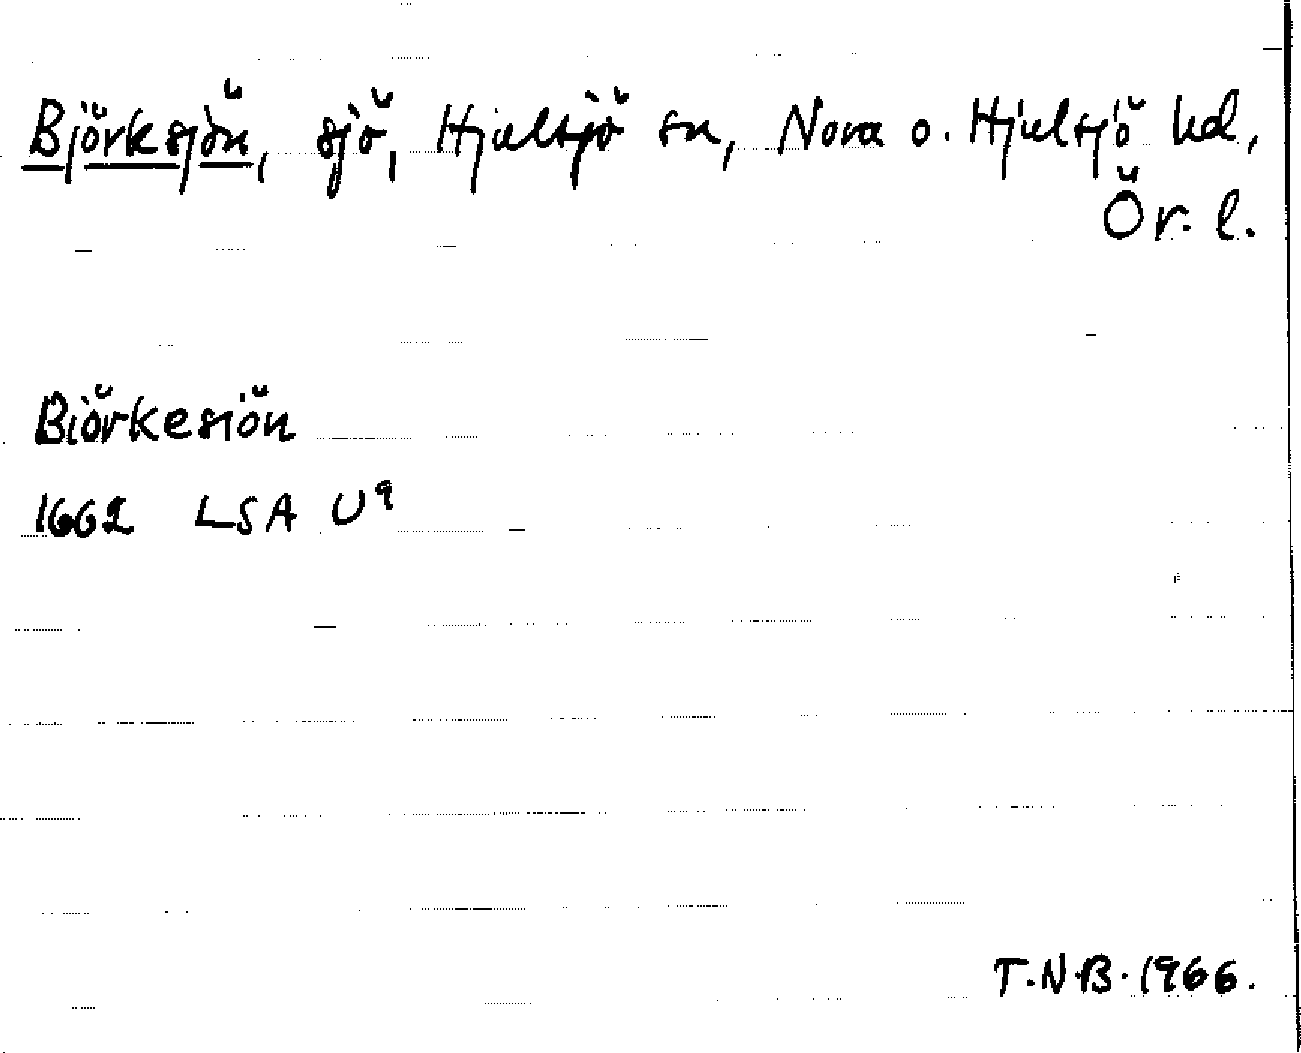 Björksjön, sjö, Hjulsjö sn, Nora o. Hjulsjö hd,
Ör. l.
Biörkesiön
1662 LSA U⁹
T.N.B. 1966.